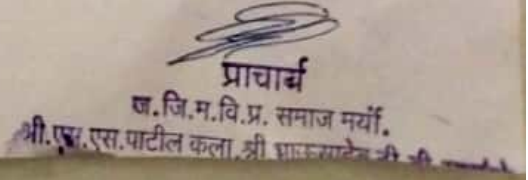 प्राचार्य
ज.जि.म.वि.प्र. समाज मर्या.
श्री.एस.एस.पाटील कला.श्री भाऊसाहेब